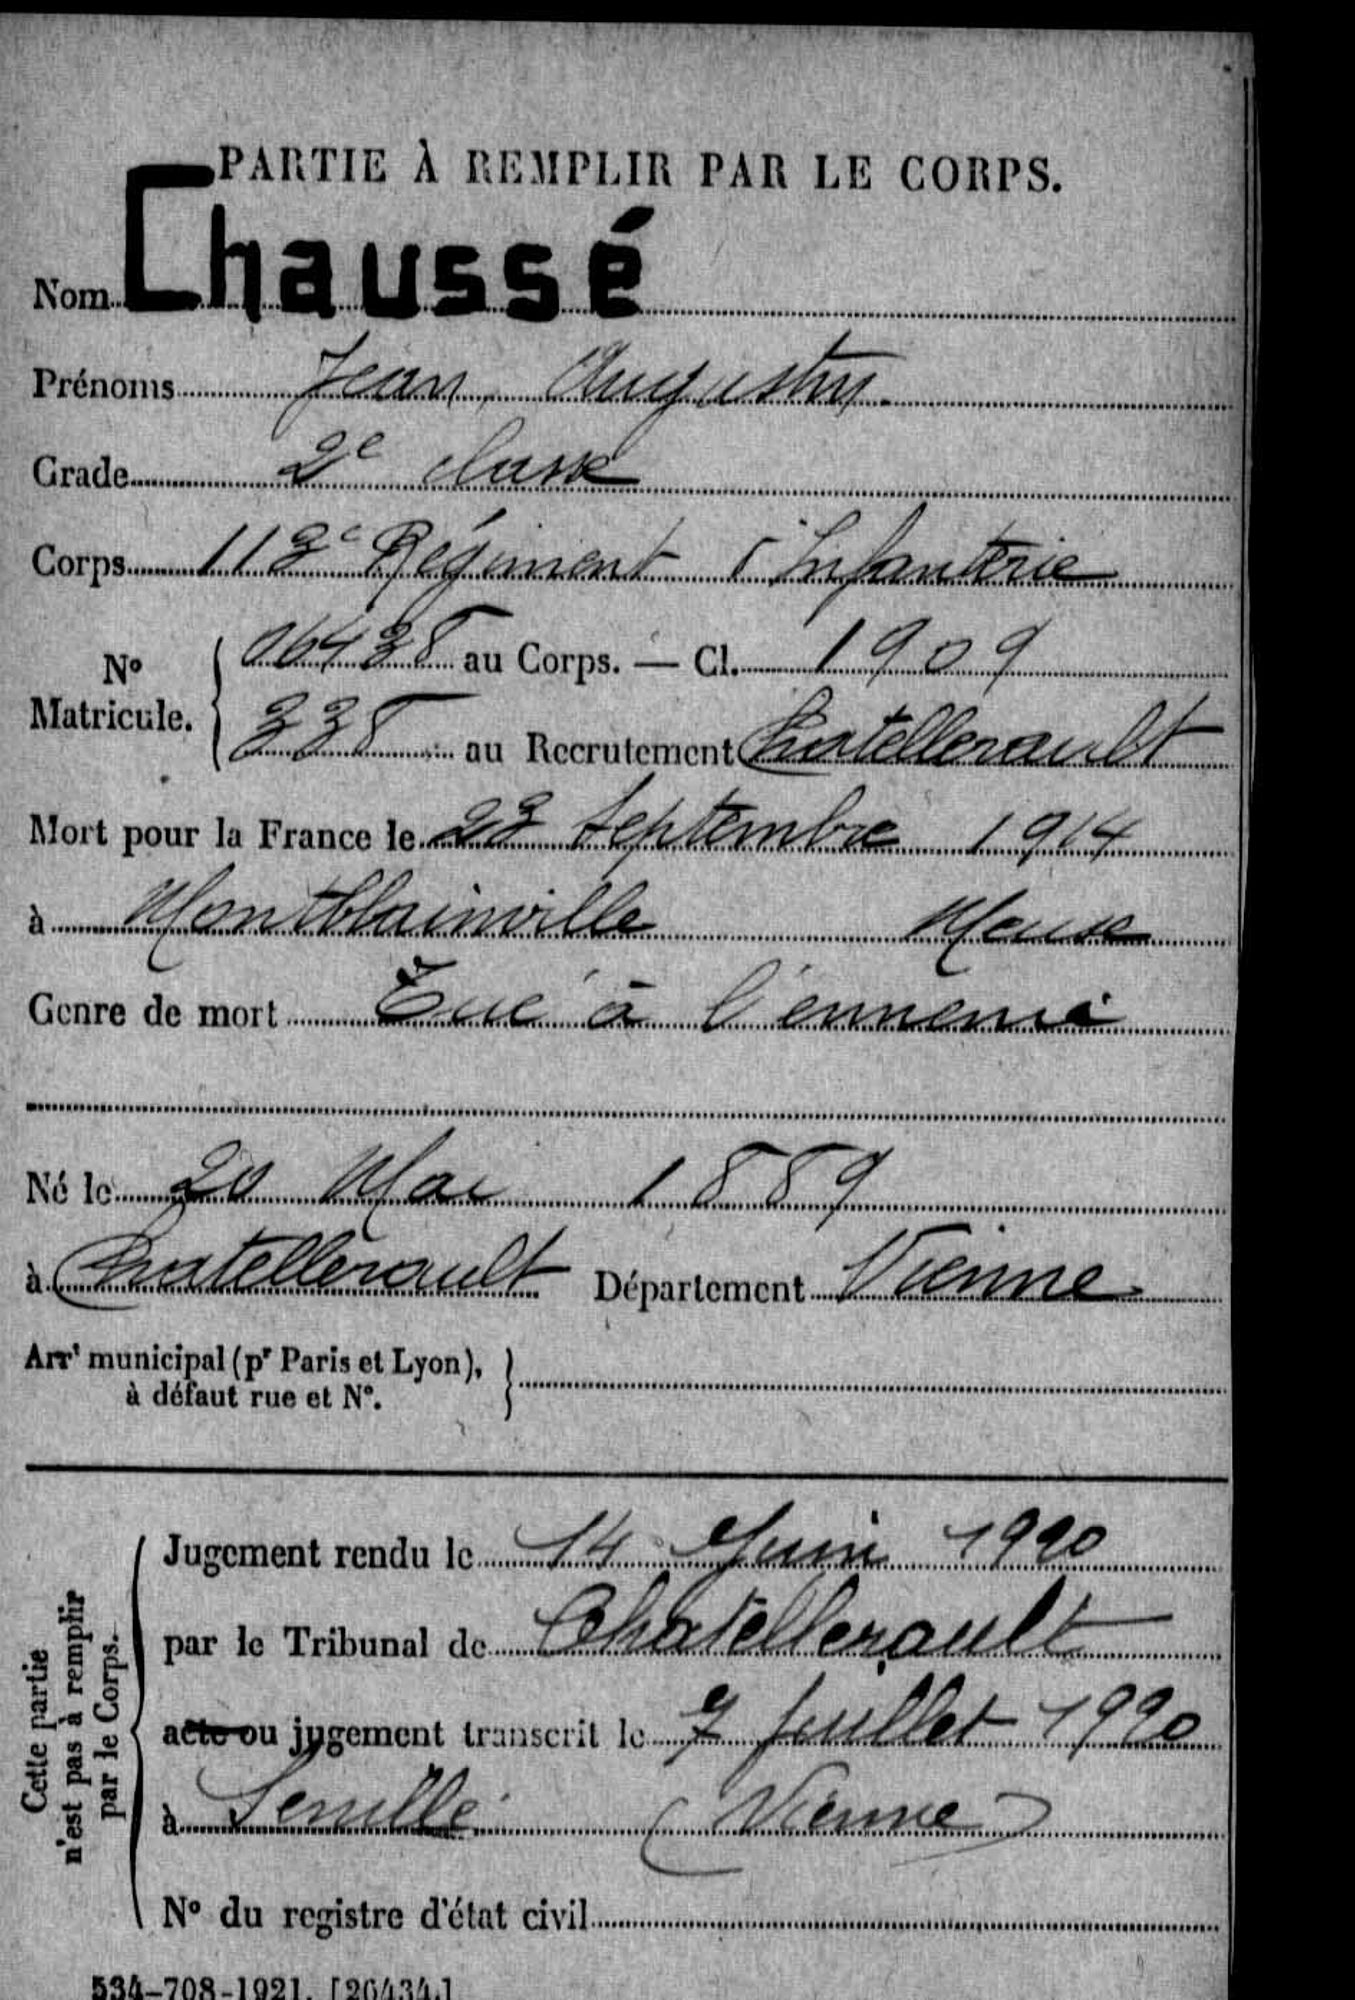 PARTIE À REMPLIR PAR LE CORPS.
Nom Chaussé
Prénoms Jean, Augustin.
Grade 2e classe
Corps 113e Régiment d'Infanterie
No Matricule. 06438 au Corps. — Cl. 1909
338 au Recrutement Chatellerault
Mort pour la France le 23 Septembre 1914
à Montblainville Meuse
Genre de mort Tué à l'ennemi
Né le 20 Mai 1889
à Chatellerault Département Vienne
Arrt municipal (pr Paris et Lyon),
à défaut rue et No.
Cette partie
n'est pas à remplir
par le Corps.
Jugement rendu le 14 Juin 1920
par le Tribunal de Chatellerault
acte ou jugement transcrit le 7 Juillet 1920
à Senillé (Vienne)
No du registre d'état civil
534-708-1921. [26434.]